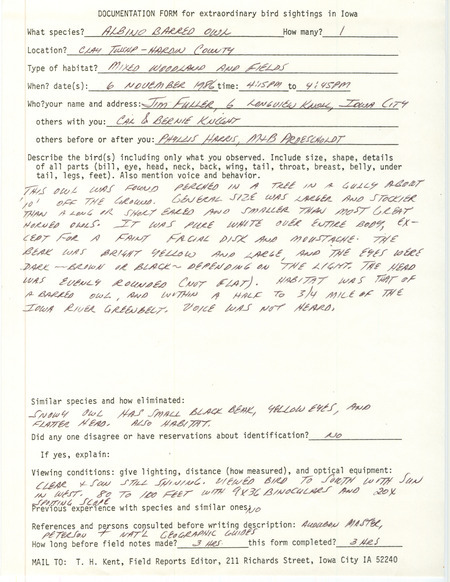 DOCUMENTATION FORM for extraordinary bird sightings in Iowa
What species? ALBINO BARRED OWL How many? 1
Location? CLAY TWNSP - HARDIN COUNTY
Type of habitat? MIXED WOODLAND AND FIELDS
When? date(s): 6 NOVEMBER 1986 time: 4:15PM to 4:45PM
Who?your name and address: JIM FULLER, 6 LONGVIEW KNOLL, IOWA CITY
others with you: CAL & BERNIE KNIGHT
others before or after you: PHYLLIS HARRIS, M+B PROESCHOLDT
Describe the bird(s) including only what you observed. Include size, shape, details
of all parts (bill, eye, head, neck, back, wing, tail, throat, breast, belly, under
tail, legs, feet). Also mention voice and behavior.
THIS OWL WAS FOUND PERCHED IN A TREE IN A GULLY ABOUT
10' OFF THE GROUND. GENERAL SIZE WAS LARGER AND STOCKIER
THAN A LONG OR SHORT EARED AND SMALLER THAN MOST GREAT
HORNED OWLS. IT WAS PURE WHITE OVER ENTIRE BODY, EX-
CEPT FOR A FAINT FACIAL DISK AND MOUSTACHE. THE
BEAK WAS BRIGHT YELLOW AND LARGE, AND THE EYES WERE
DARK — BROWN OR BLACK - DEPENDING ON THE LIGHT. THE HEAD
WAS EVENLY ROUNDED (NOT FLAT). HABITAT WAS THAT OF
A BARRED OWL, AND WITHIN A HALF TO 3/4 MILE OF THE
IOWA RIVER GREENBELT. VOICE WAS NOT HEARD.
Similar species and how eliminated:
SNOWY OWL HAS SMALL BLACK BEAK, YELLOW EYES, AND
FLATTER HEAD. ALSO HABITAT.
Did any one disagree or have reservations about identification? NO
If yes, explain:
Viewing conditions: give lighting, distance (how measured), and optical equipment:
CLEAR & SUN STILL SHINING. VIEWED BIRD TO SOUTH WITH SUN
IN WEST. 80 TO 100 FEET WITH 9X36 BINOCULARS AND 20X
SPOTTING SCOPE
Previous experience with species and similar ones: NO
References and persons consulted before writing description: AUDUBON MASTER,
PETERSON + NAT'L GEOGRAPHIC GUIDES
How long before field notes made? 3 HRS this form completed? 3 HRS
MAIL TO: T. H. Kent, Field Reports Editor, 211 Richards Street, Iowa City IA 52240